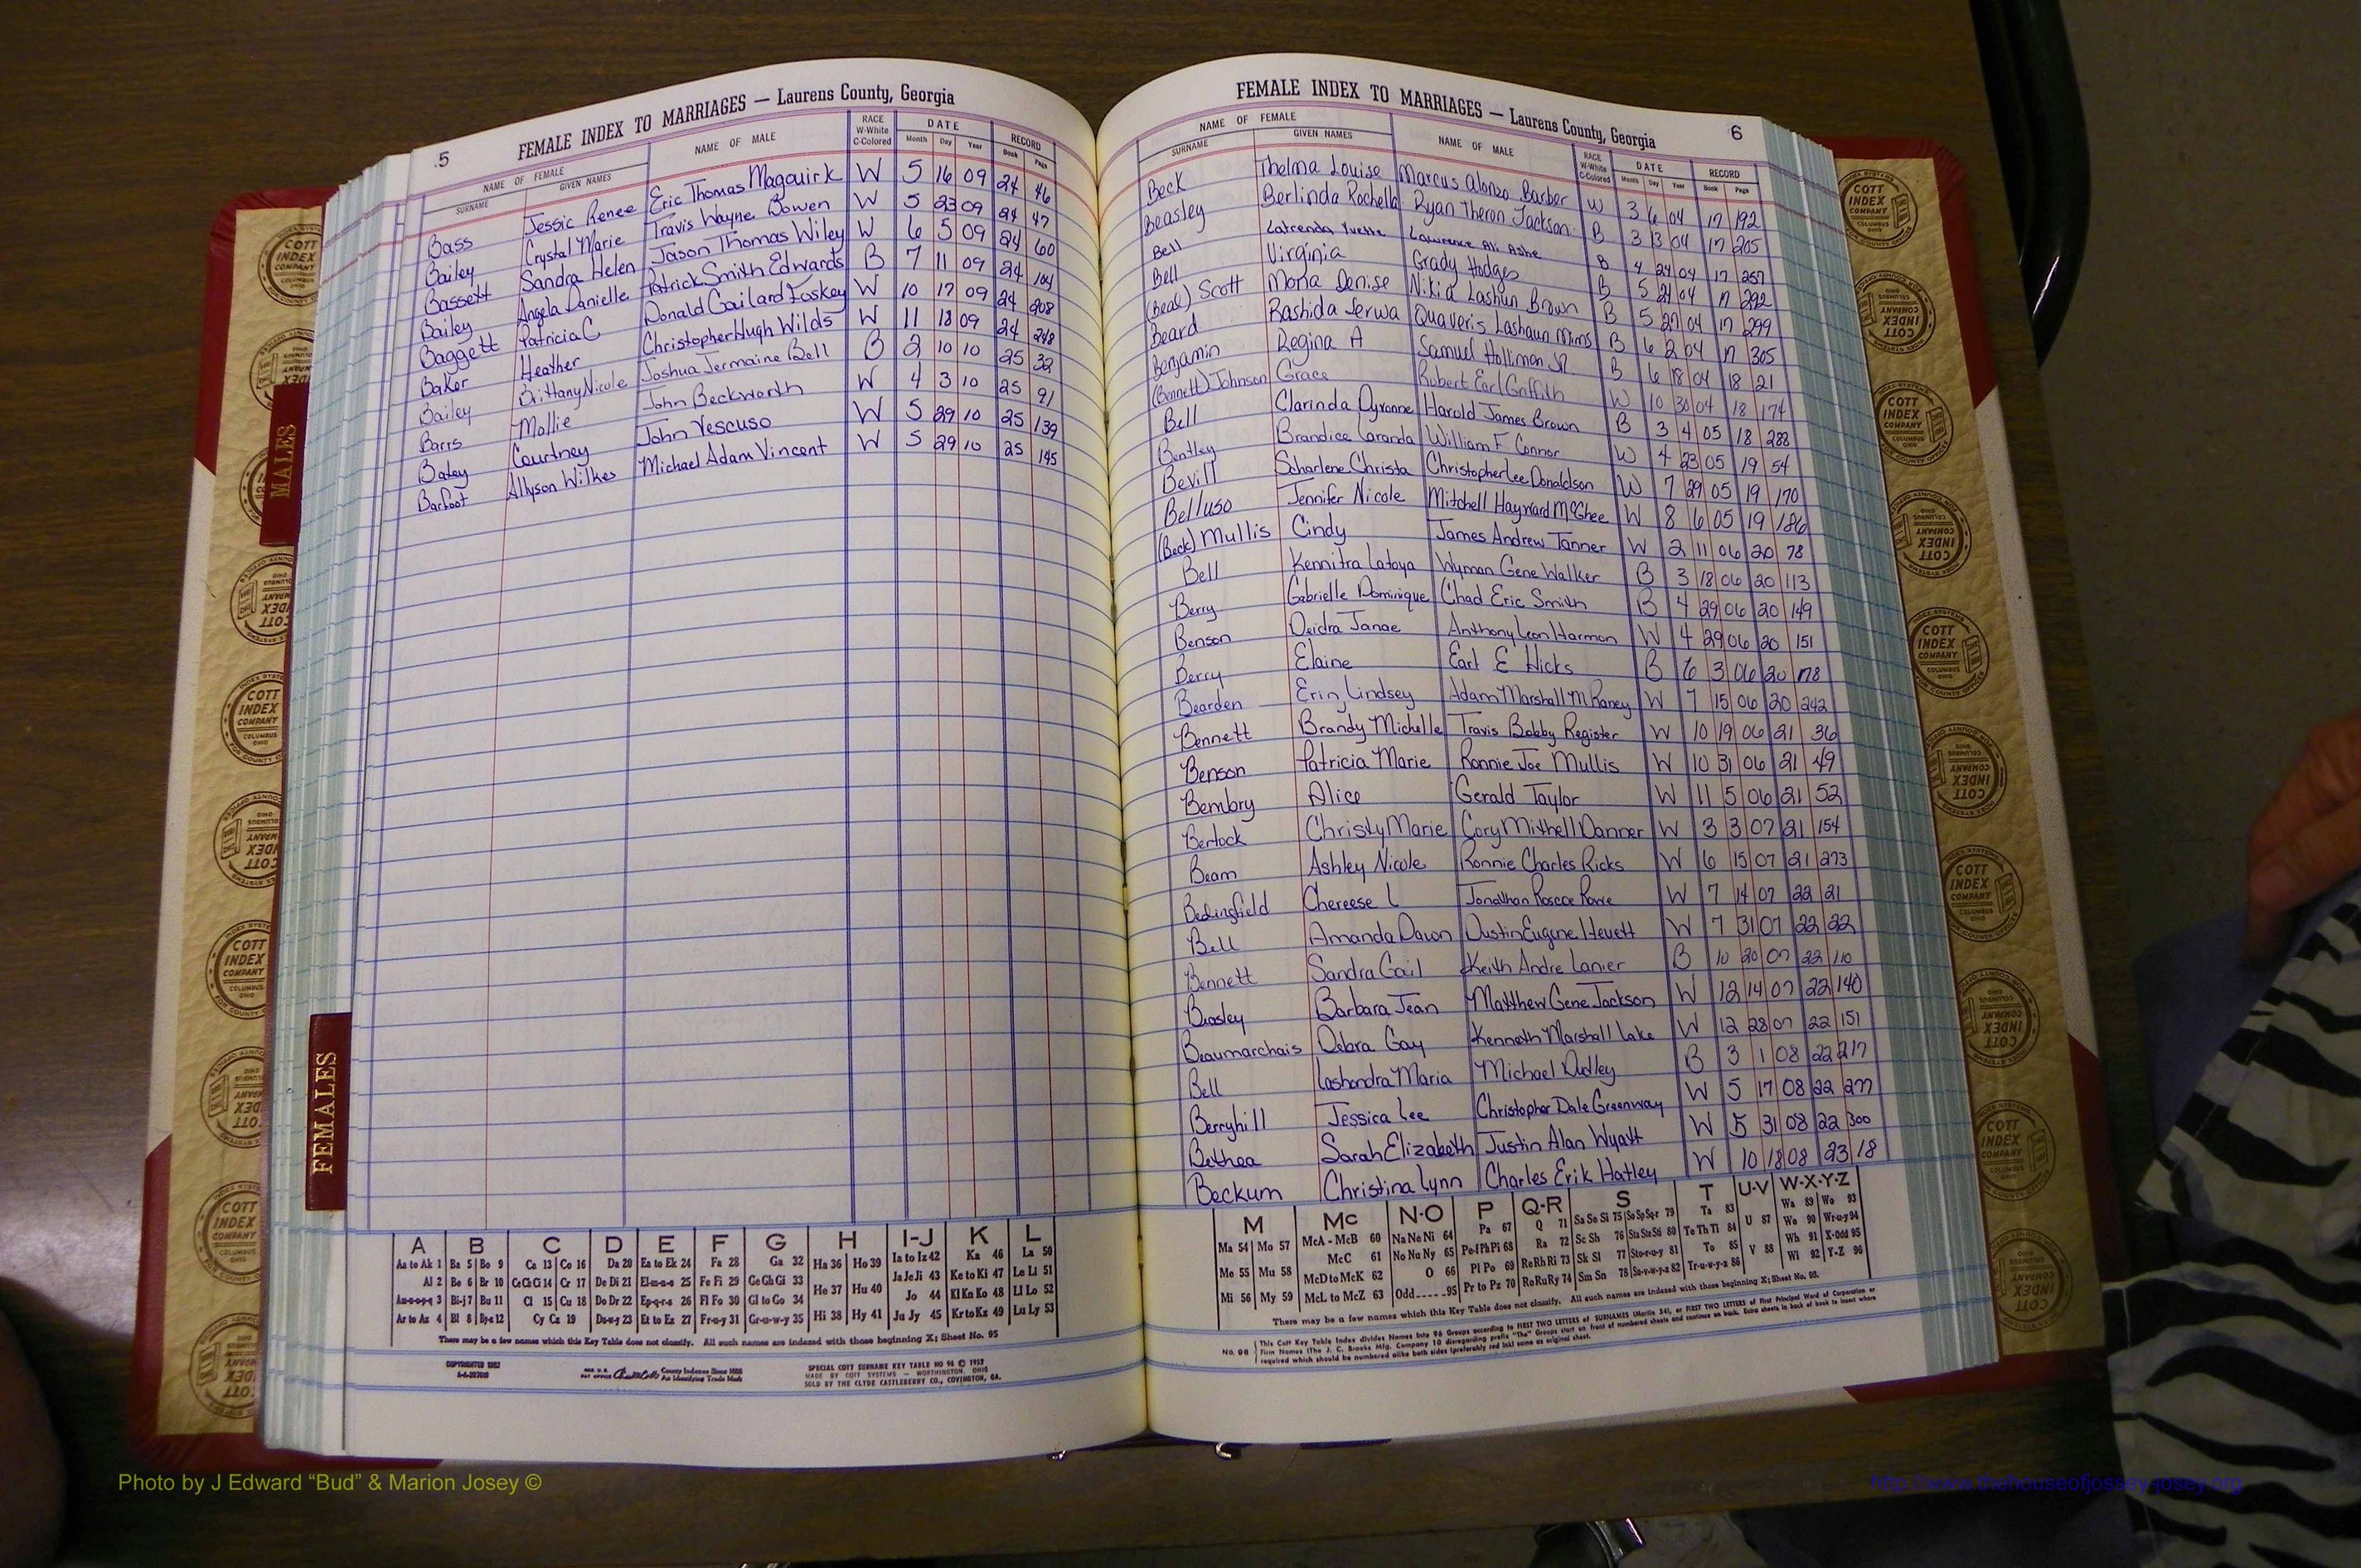 5 FEMALE INDEX TO MARRIAGES — Laurens County, Georgia
NAME OF FEMALE NAME OF MALE RACE W-White C-Colored DATE RECORD
SURNAME GIVEN NAMES Month Day Year Book Page
Bass Jessic Renee Eric Thomas Magouirk W 5 16 09 24 46
Bailey Crystal Marie Travis Wayne Bowen W 5 23 09 24 47
Bassett Sandra Helen Jason Thomas Wiley W 6 5 09 24 60
Bailey Angela Danielle Patrick Smith Edwards B 7 11 09 24 104
Baggett Patricia C Donald Gailard Foskey W 10 17 09 24 208
Baker Heather Christopher Hugh Wilds W 11 18 09 24 248
Bailey Brittany Nicole Joshua Jermaine Bell B 2 10 10 25 32
Barrs Mollie John Beckworth W 4 3 10 25 91
Batey Courtney John Vescuso W 5 29 10 25 139
Barfoot Allyson Wilkes Michael Adam Vincent W 5 29 10 25 145
A B C D E F G H I-J K L
Aa to Ak 1 Ba 5 Bo 9 Ca 13 Co 16 Da 20 Ea to Ek 24 Fa 28 Ga 32 Ha 36 Ho 39 Ia to Iz 42 Ka 46 La 50
Al 2 Be 6 Br 10 Ce Ch Ci 14 Cr 17 De Di 21 El-m-n-o 25 Fe Fi 29 Ge Gh Gi 33 He 37 Hu 40 Ja Je Ji 43 Ke to Ki 47 Le Li 51
Am-n-o-p-q 3 Bi-j 7 Bu 11 Cl 15 Cu 18 Do Dr 22 Ep-q-r-s 26 Fl Fo 30 Gl to Go 34 Jo 44 Kl Kn Ko 48 Ll Lo 52
Ar to Az 4 Bl 8 By-z 12 Cy Cz 19 Du-w-y 23 Et to Ez 27 Fr-u-y 31 Gr-u-w-y 35 Hi 38 Hy 41 Ju Jy 45 Kr to Kz 49 Lu Ly 53
There may be a few names which this Key Table does not classify. All such names are indexed with those beginning X; Sheet No. 95
COPYRIGHTED 1952
REG. U.S. PAT OFFICE County Indexes Since 1888 An Identifying Trade Mark
SPECIAL COTT SURNAME KEY TABLE NO 96 © 1952
MADE BY COTT SYSTEMS — WORTHINGTON, OHIO
SOLD BY THE CLYDE CASTLEBERRY CO., COVINGTON, GA.
FEMALE INDEX TO MARRIAGES — Laurens County, Georgia 6
NAME OF FEMALE NAME OF MALE RACE W-White C-Colored DATE RECORD
SURNAME GIVEN NAMES Month Day Year Book Page
Beck Thelma Louise Marcus Alonzo Barber W 3 6 04 17 192
Beasley Berlinda Rochella Ryan Theron Jackson B 3 13 04 17 205
Bell Latrenda Yvette Lawrence Ali Ashe B 4 24 04 17 257
Bell Virginia Grady Hodges B 5 24 04 17 292
(Beal) Scott Moria Denise Nikia Lashun Brown B 5 27 04 17 299
Beard Rashida Serwa Quaveris Lashaun Mims B 6 2 04 17 305
Benjamin Regina A Samuel Hollman Jr. B 6 18 04 18 21
(Bennett) Johnson Grace Robert Earl Griffith W 10 30 04 18 174
Bell Clarinda Dyronne Harold James Brown B 3 4 05 18 288
Bentley Brandice Laranda William F Connor W 4 23 05 19 54
Bevill Scharlene Christa Christopher Lee Donaldson W 7 29 05 19 170
Belluso Jennifer Nicole Mitchell Hayward McGhee W 8 6 05 19 186
(Beck) Mullis Cindy James Andrew Tanner W 2 11 06 20 78
Bell Kennitra Latoya Wyman Gene Walker B 3 18 06 20 113
Berry Gabrielle Dominique Chad Eric Smith B 4 29 06 20 149
Benson Deidra Janae Anthony Leon Harmon W 4 29 06 20 151
Berry Elaine Earl E Hicks B 6 3 06 20 178
Bearden Erin Lindsey Adam Marshall McRaney W 7 15 06 20 242
Bennett Brandy Michelle Travis Bobby Register W 10 19 06 21 36
Benson Patricia Marie Ronnie Joe Mullis W 10 31 06 21 49
Bembry Alice Gerald Taylor W 11 5 06 21 52
Bertock Christy Marie Cory Mithell Danner W 3 3 07 21 154
Beam Ashley Nicole Ronnie Charles Ricks W 6 15 07 21 273
Bedingfield Chereese L Jonathan Roscoe Rowe W 7 14 07 22 21
Bell Amanda Dawn Dustin Eugene Hewett W 7 31 07 22 22
Bennett Sandra Gail Keith Andre Lanier B 10 20 07 22 110
Beasley Barbara Jean Matthew Gene Jackson W 12 14 07 22 140
Beaumarchais Debra Gay Kenneth Marshall Lake W 12 28 07 22 151
Bell Lashondra Maria Michael Dudley B 3 1 08 22 217
Berryhill Jessica Lee Christopher Dale Greenway W 5 17 08 22 277
Bethea Sarah Elizabeth Justin Alan Wyatt W 5 31 08 22 300
Beckum Christina Lynn Charles Erik Hatley W 10 18 08 23 18
M Mc N-O P Q-R S T U-V W-X-Y-Z
Ma 54 Mo 57 McA - McB 60 Na Ne Ni 64 Pa 67 Q 71 Sa Se Si 75 So Sp Sq-r 79 Ta 83 U 87 Wa 89 Wo 93
Me 55 Mu 58 McC 61 No Nu Ny 65 Pe-f Ph Pi 68 Ra 72 Sc Sh 76 Sta Ste Sti 80 Te Th Ti 84 V 88 We 90 Wr-u-y 94
McD to McK 62 O 66 Pl Po 69 Re Rh Ri 73 Sk Sl 77 Sto-r-u-y 81 To 85 Wh 91 X-Odd 95
Mi 56 My 59 McL to McZ 63 Odd-----95 Pr to Pz 70 Ro Ru Ry 74 Sm Sn 78 Su-v-w-y-z 82 Tr-u-w-y-z 86 Wi 92 Y-Z 96
There may be a few names which this Key Table does not classify. All such names are indexed with those beginning X; Sheet No. 95.
No. 96 This Cott Key Table Index divides Names into 96 Groups according to FIRST TWO LETTERS of SURNAMES (Martin 54), or FIRST TWO LETTERS of First Principal Word of Corporation or
Firm Names (The J. C. Brooks Mfg. Company 10 disregarding prefix "The" Groups start on front of numbered sheets and continue on back. Extra sheets in back of book to insert where
required which should be numbered alike both sides (preferably red ink) same as original sheet.
MALES
FEMALES
COTT INDEX COMPANY COLUMBUS OHIO
Photo by J Edward “Bud” & Marion Josey ©
http://www.thehouseofjossey-josey.org